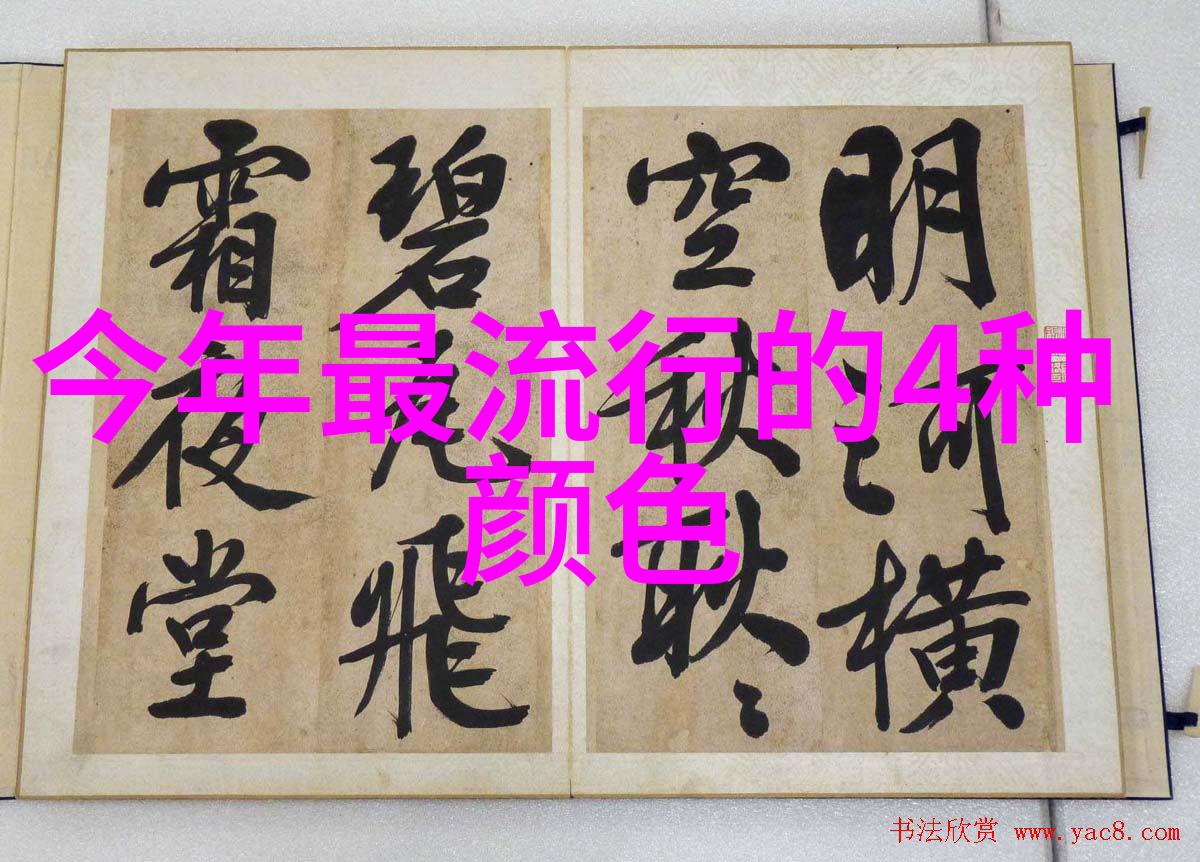 明河橫
空秋耿〻
碧瓦飛
霜夜堂
今年最流行的4种
颜色
书法欣赏 www.yac8.com